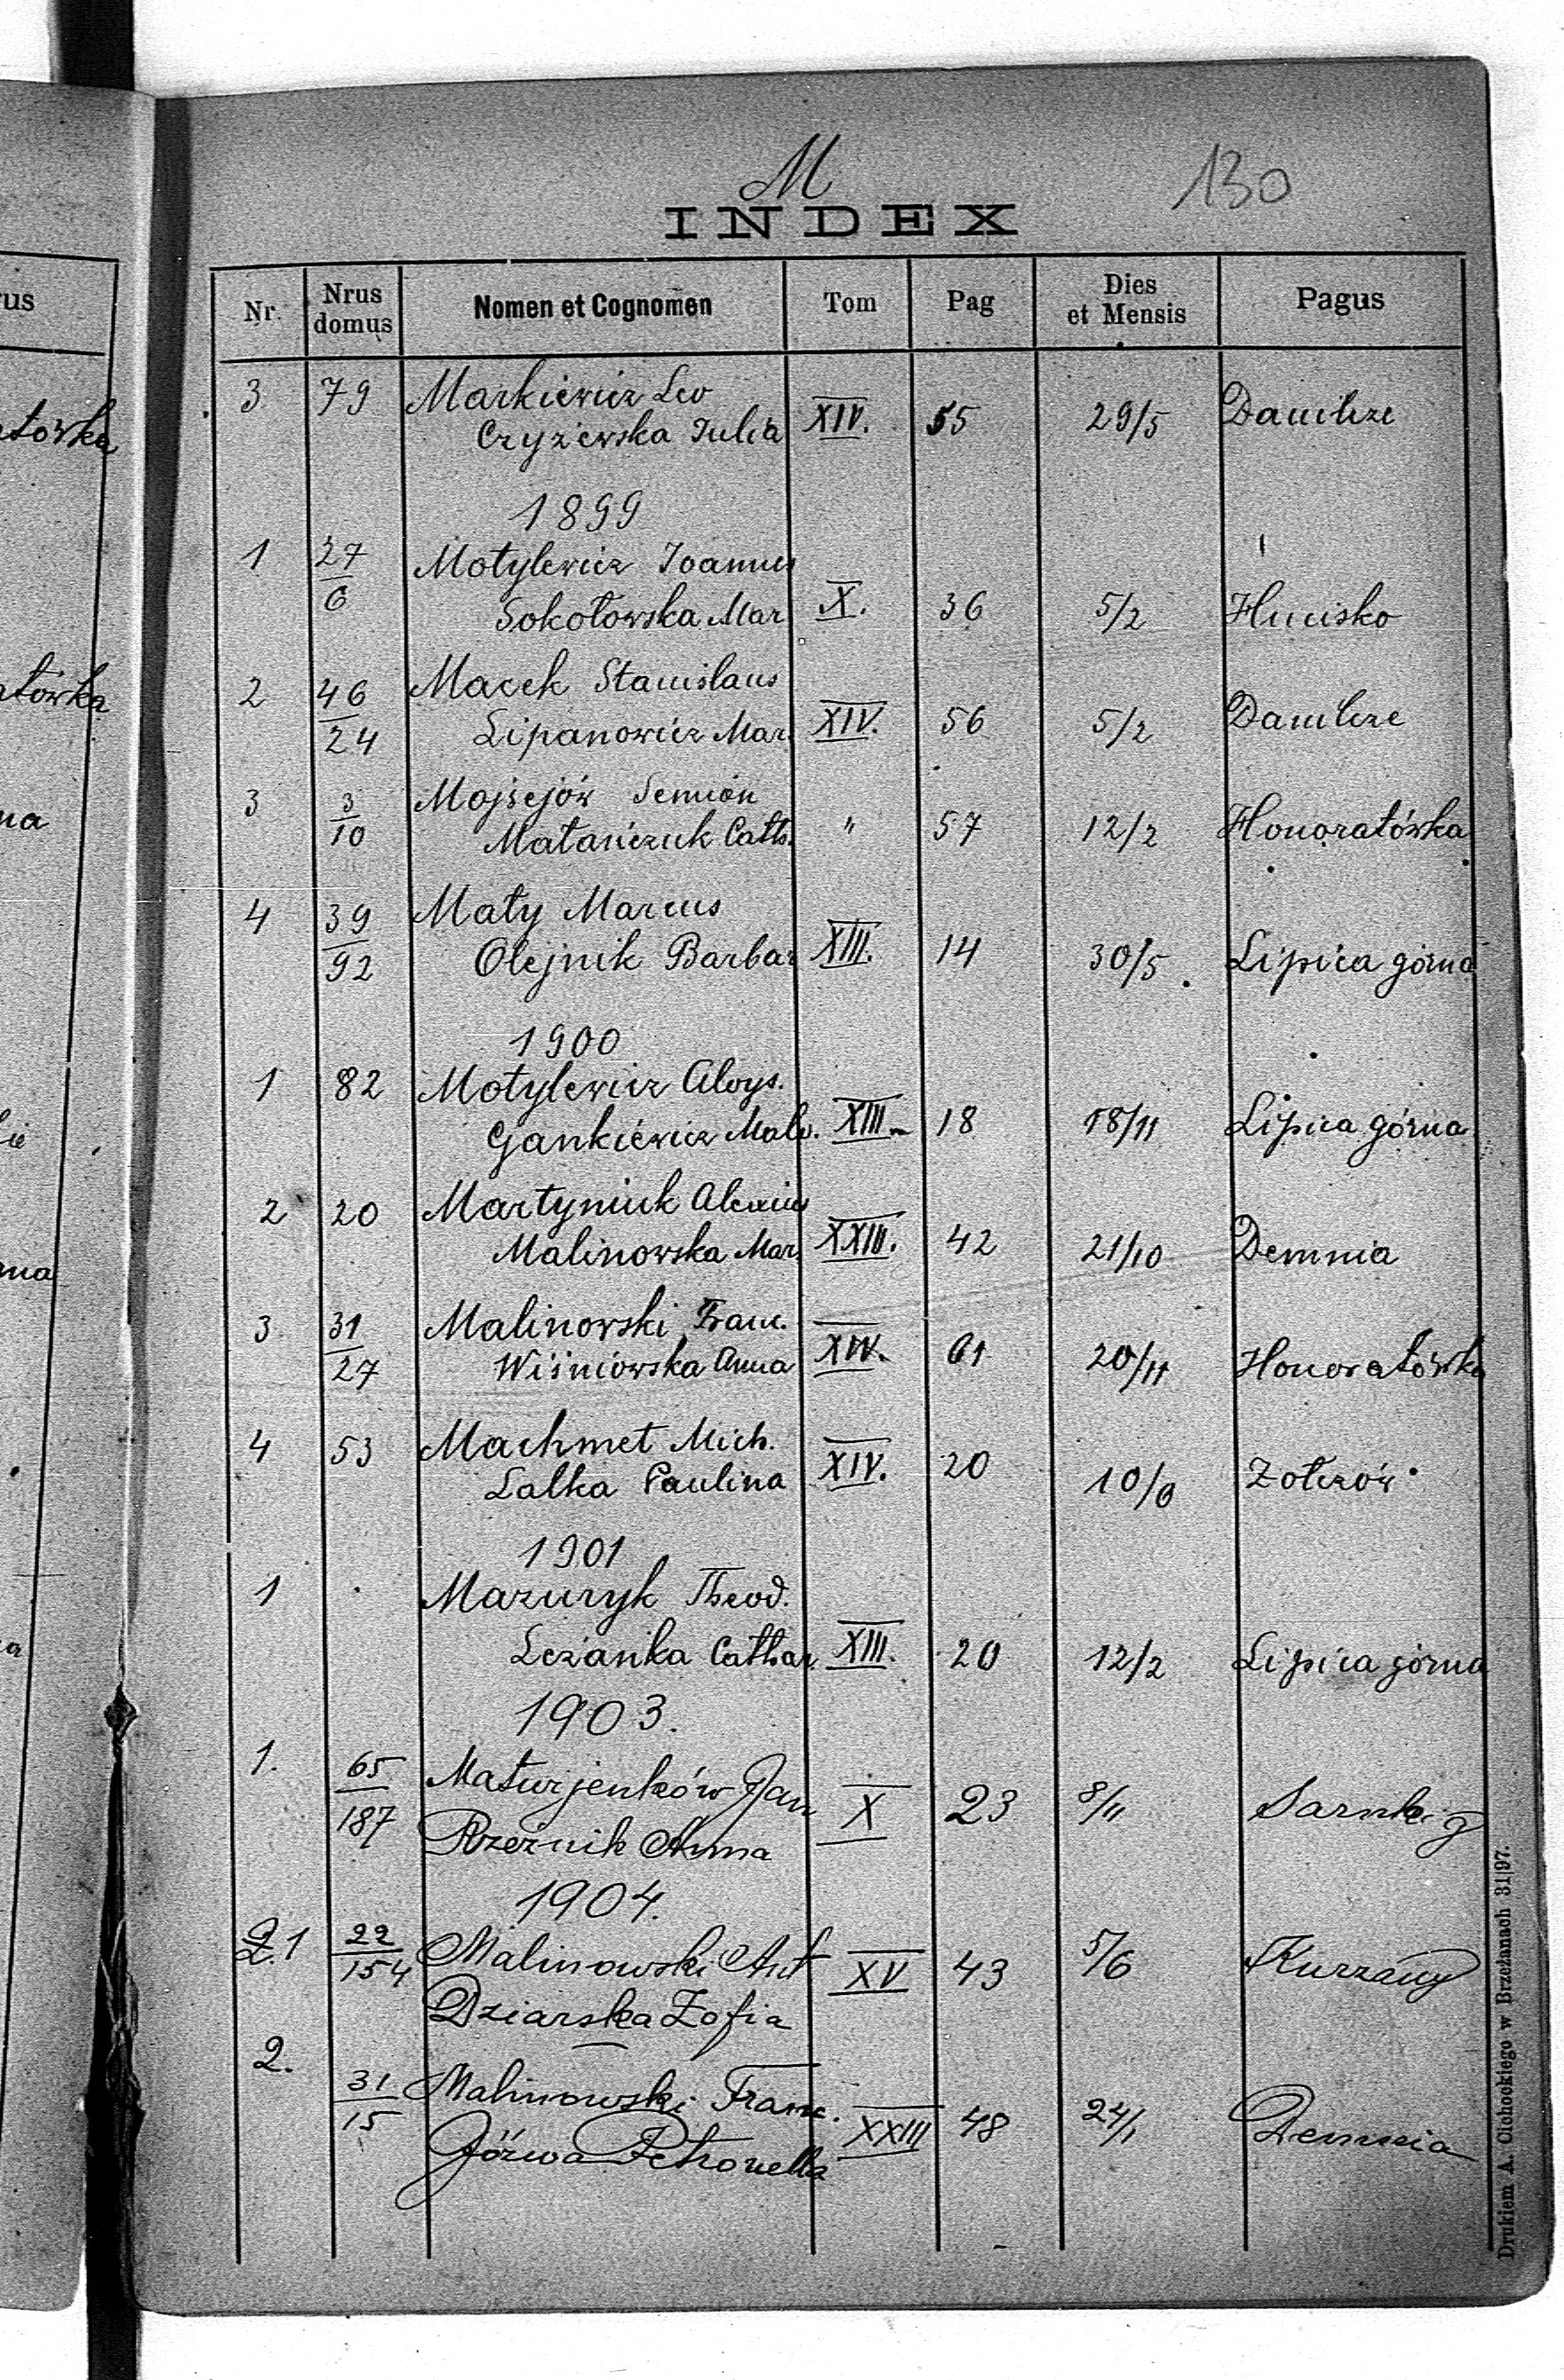 M
130
INDEX
Nr. Nrus domus Nomen et Cognomen Tom Pag Dies et Mensis Pagus
3 79 Markiewicz Leo
Czyżewska Julia XIV. 55 29/5 Danilcze
1899
1 27/6 Motylewicz Joannes
Sokołowska Mar X. 36 5/2 Hucisko
2 46/24 Macek Stanislaus
Lipanowicz Mar. XIV. 56 5/2 Danilcze
3 3/10 Mojsejów Semion
Matańczuk Cath. " 57 12/2 Honoratówka
4 39/92 Mały Marcus
Olejnik Barbar XIII. 14 30/5. Lipica górna
1900
1 82 Motylewicz Aloys.
Gankiewicz Malv. XIII. 18 18/11 Lipica górna
2 20 Martyniuk Alexius
Malinowska Mar XXIII. 42 21/10 Demnia
3 31/27 Malinowski Franc.
Wiśniowska Anna XIV. 61 20/11 Honoratówka
4 53 Machmet Mich.
Lalka Paulina XIV. 20 Zołczów
1901
1 Mazuryk Theod.
Leżańka Cathar. XIII. 20 12/2 Lipica górna
1903.
1. 65/187 Matwijenków Jan
Rzeźnik Anna X 23 8/11 Sarnki g
1904.
1 22/154 Malinowski Ant
Dziarska Zofia XV 43 5/6 Kurzany
2. 31/15 Malinowski Franc.
Józwa Petronella XXIII 48 24/1 Demnia
Drukiem A. Cichockiego w Brzeżanach 31|97.
rus
atówka
atówka
na
na